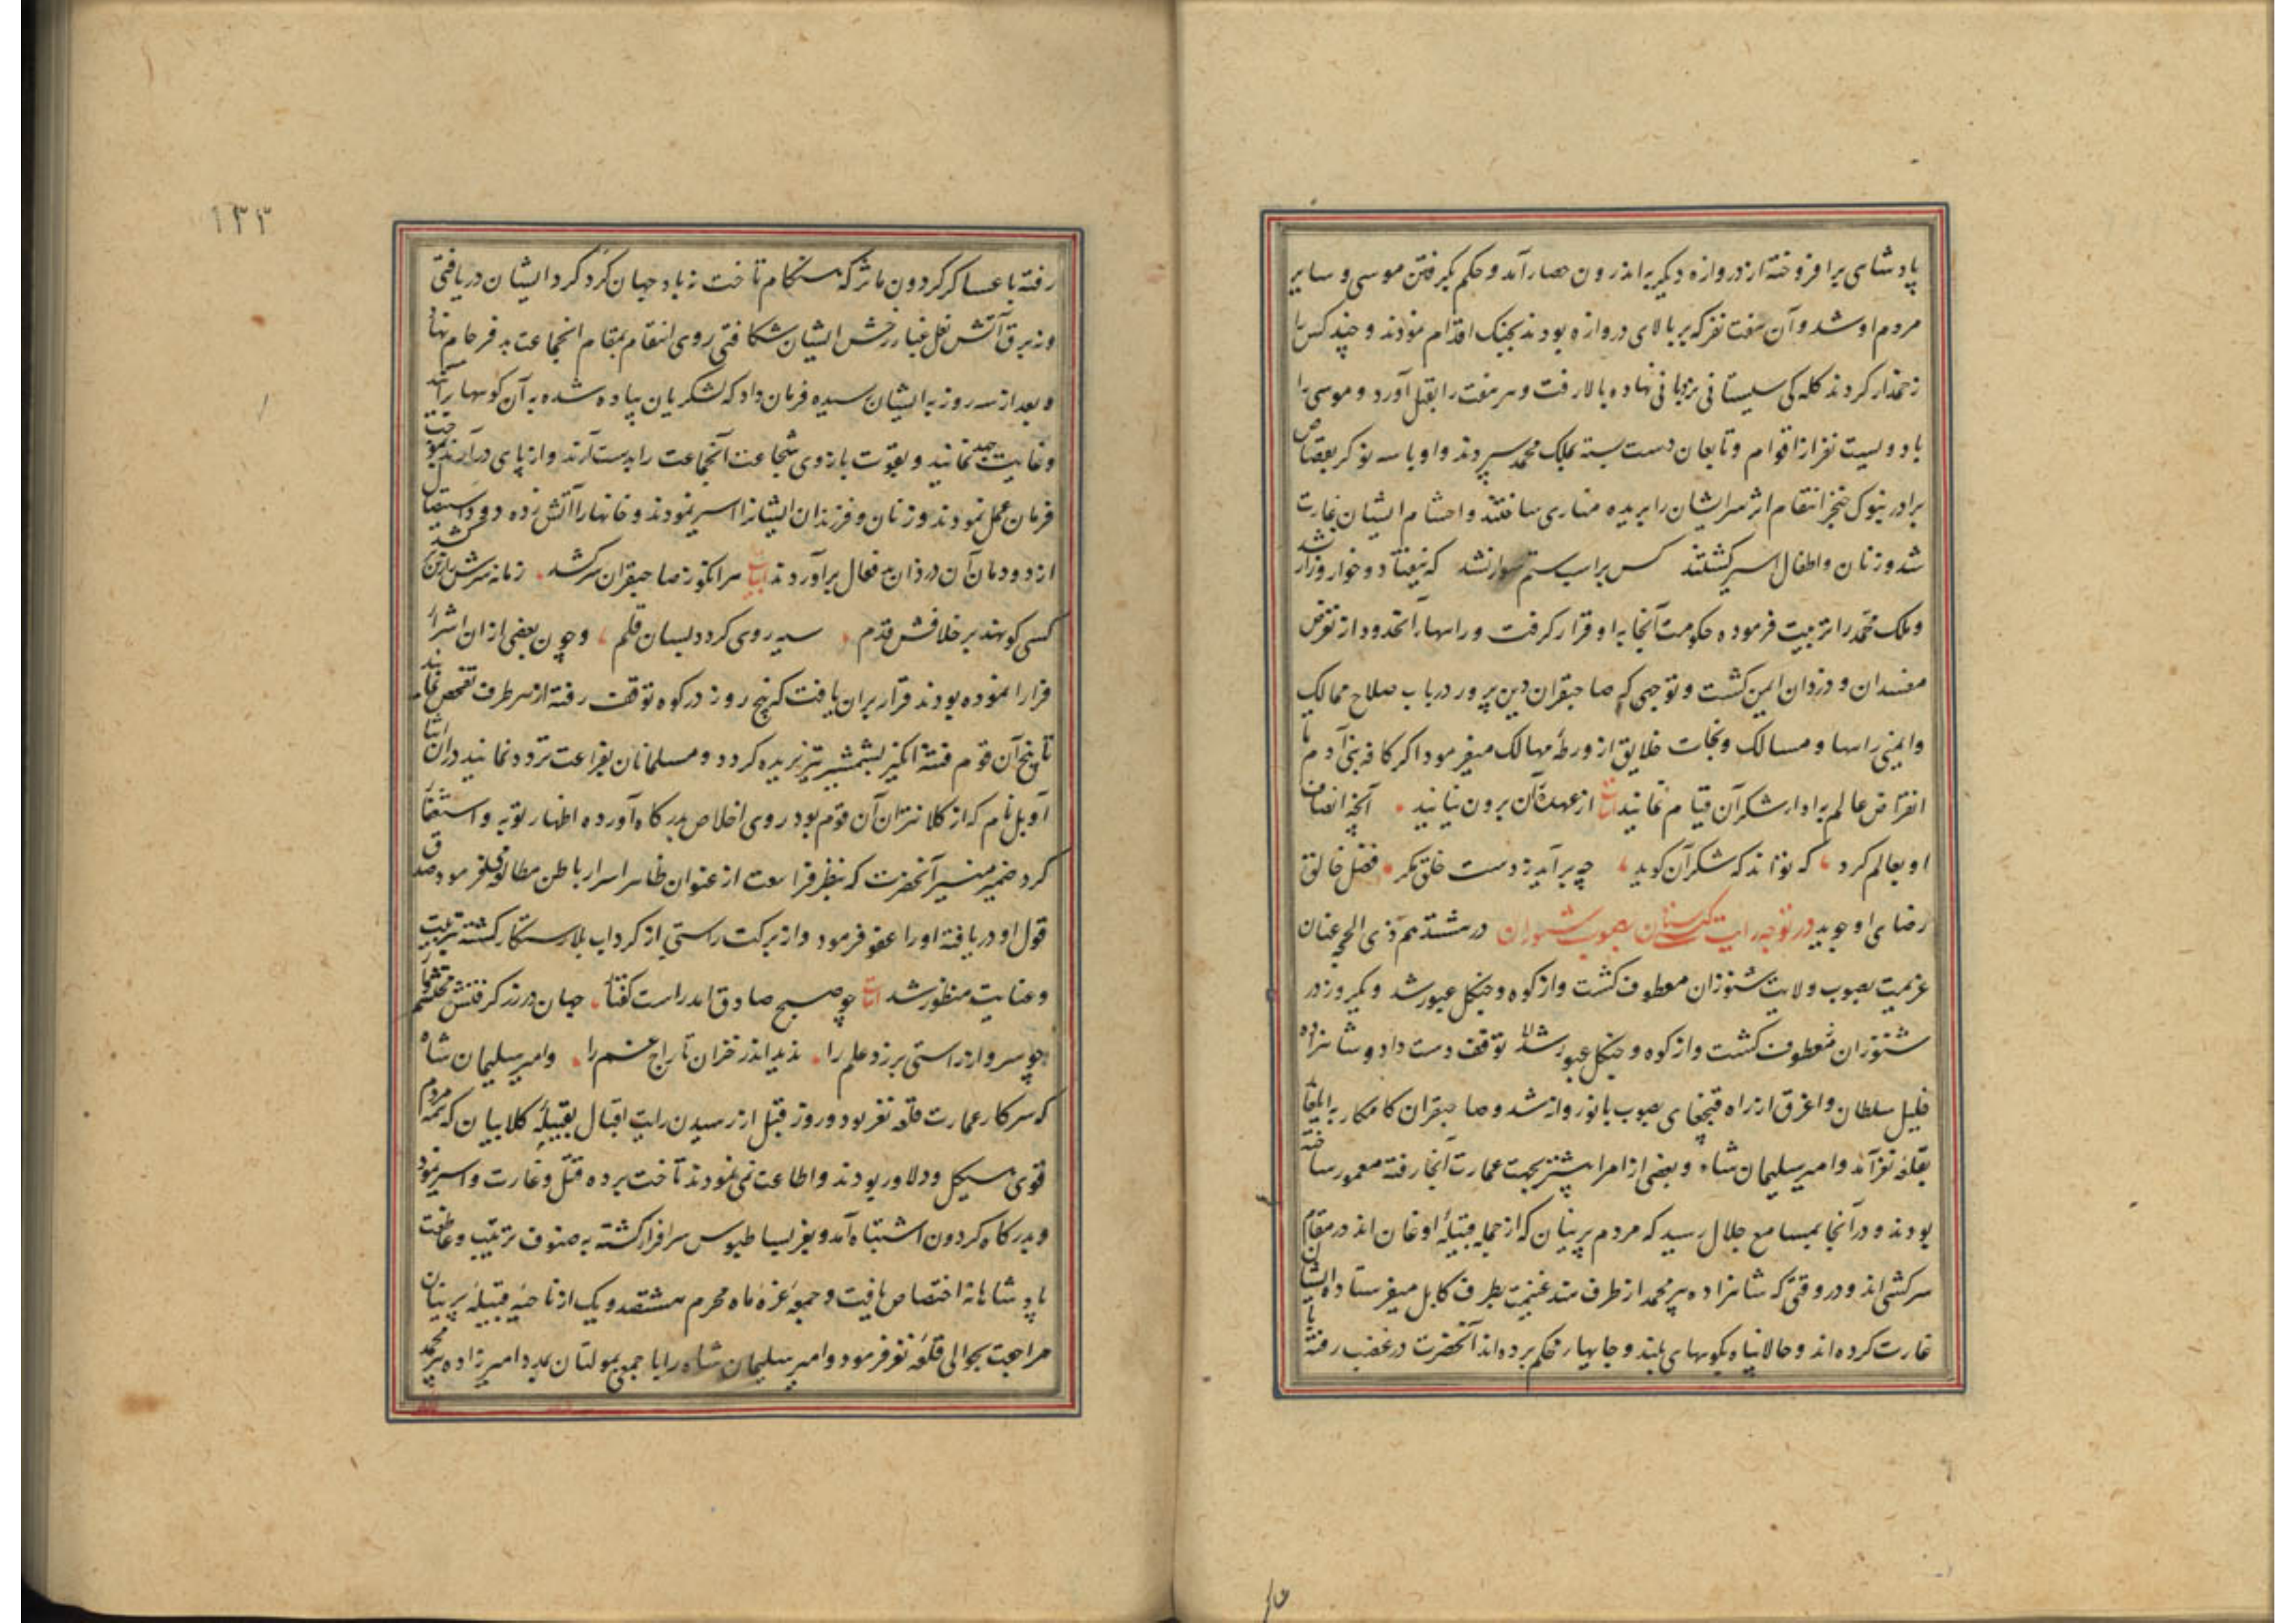 پادشاهی برافروخته از دروازه دیگر به اندرون حصار آمد و حکم بگرفتن موسی و سایر
مردم او شد و آن هفت نفر که بر بالای دروازه بودند بجنک اقدام نمودند و چند کس را
زخمدار کردند کله کی سیستانی نردبانی نهاده بالا رفت و هر هفت را بقتل آورد و موسی را
با دویست نفر از اقوام و تابعان دست بسته بملک محمد سپردند و او با سه نوکر بقصاص
برادر بنوک خنجر انتقام اثر سر ایشان را بریده مناری ساختند و احشام ایشان غارت
شد و زنان و اطفال اسیر کشتند کس بر اسب ستم سوار نشد که نیفتاد و خوار و زار نشد
و ملک محمد را تربیت فرموده حکومت آنجا به او قرار کرفت و راهها آنحدود از تعرض
مفسدان و دزدان ایمن کشت و توجهی که صاحبقران دین پرور در باب صلاح ممالک
و ایمنی راهها و مسالک و نجات خلایق از ورطهٔ مهالک میفرمود اکر کافه بنی آدم تا
انقراض عالم به ادا شکر آن قیام نمایند ابیات از عهده آن برون نیایند آنچه انصاف
او بعالم کرد که تواند که شکر آن کوید چه بر آید ز دست خلق مکر فضل خالق
رضای او جوید در توجه رایت کیتی ستان بصوب شنوزان در هشتدهم ذی الحجه عنان
عزیمت بصوب ولایت شنوزان معطوف کشت و از کوه و جنکل عبور شد و یکروز در
شنوزان معطوف کشت و از کوه و جنکل عبور شد توقف دست داد و شاهزاده
خلیل سلطان و اغرق از راه قبچغای بصوب بانو روانه شد و صاحبقران کامکار به ایلغار
بقلعه نغز آمد و امیر سلیمان شاه و بعضی از امرا پیشتر بجهت عمارت آنجا رفته معمور ساخته
بودند و در آنجا بمسامع جلال رسید که مردم پرنیان که از جمله قبیلهٔ اوغان اند در مقام
سرکشی اند و در وقتی که شاهزاده پیر محمد از طرف هند غنیمت بطرف کابل میفرستاده ایشان
غارت کرده اند و حالا پناه بکوههای بلند و جایهای محکم برده اند آنحضرت در غضب رفته با
۱۳۳
رفته با عساکر کردون ماثر که هنکام تاخت ز باد جهان کرد کرد ایشان دریافتی
و ز برق آتش نعل غبار رخش ایشان شکافتی روی انتقام بمقام انجماعت بد فرجام نهاد
و بعد از سه روز به ایشان رسیده فرمان داد که لشکریان پیاده شده به آن کوهها برآیند
و غایت جهد نمایند و بقوت بازوی شجاعت آنجماعت را بدست آرند و از پای درآرند بموجب
فرمان عمل نمودند و زنان و فرزندان ایشانرا اسیر نمودند و خانها را آتش زده دود استیصال
از دودمان آن دزدان بدفعال برآوردند ابیات هر انکو ز صاحبقران سرکشد زمانه سرش را ز تن برکشد
کسی کو نهد بر خلافش قدم سیه روی کردد بسان قلم و چون بعضی از ان اشرار
فرار نموده بودند قرار بران یافت که پنج روز در کوه توقف رفته از هر طرف تفحص نمایند
تا بیخ آن قوم فتنه انکیز بشمشیر تیز بریده کردد و مسلمانان بفراغت تردد نمایند دران اثنا
آوبل نام که از کلانتران آن قوم بود روی اخلاص بدرکاه آورده اظهار توبه و استغفار
کرد ضمیر منیر آنحضرت که بنظر فراست از عنوان ظاهر اسرار باطن مطالعه میفرمود صدق
قول او دریافته او را عفو فرمود و از برکت راستی از کرداب بلا رستکار کشته بتربیت
و عنایت منظور شد ابیات چو صبح صادق آمد راست کفتار جهان در زر کرفتش محتشم وار
چو سرو از راستی برزد علم را ندید اندر خزان تاراج غم را و امیر سلیمان شاه
که سرکار عمارت قلعه نغز بود دو روز قبل از رسیدن رایت اقبال بقبیلهٔ کلابیان که همه مردم
قوی هیکل و دلاور بودند و اطاعت نمی نمودند تاخت برده قتل و غارت و اسیر نمود
و بدرکاه کردون اشتباه آمد و بعز بساط بوس سرافراز کشته به صنوف تربیت و عاطفت
پادشاهانه اختصاص یافت و جمعه غره ماه محرم هشتصد و یک از ناحیه قبیلهٔ پرنیان
مراجعت بحوالی قلعه نغز فرمود و امیر سلیمان شاه را با جمعی بمولتان بمدد امیرزاده پیر محمد